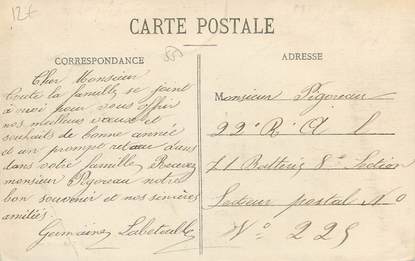 12f
CARTE POSTALE
CORRESPONDANCE
ADRESSE
Cher Monsieur
Toute la famille se joint
à moi pour vous offrir
nos meilleurs vœux et
souhaits de bonne année
et un prompt retour dans
dans votre famille Recevez
monsieur Pigoreau notre
bon souvenir et nos sincères
amitiés.
Germaine
Monsieur Pigoreau
22e R A L
71 Batterie Section
Secteur postal No
No 225